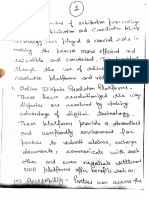 1
of arbitration proceedings
Arbitration and Conciliation Act
technology has played a crucial role in
making the process more efficient and
accessible and convenient.
resolution platforms and
1. Online Dispute Resolution Platforms -
These have revolutionized the way
disputes are resolved by taking
advantage of digital technology.
These platforms provide a streamlined
and userfriendly environment for
parties to submit claims, exchange
documents, communicate with each
other and even negotiate settlement
ODR platforms offer benefits such as:
(a) Accessibility - Parties can access the